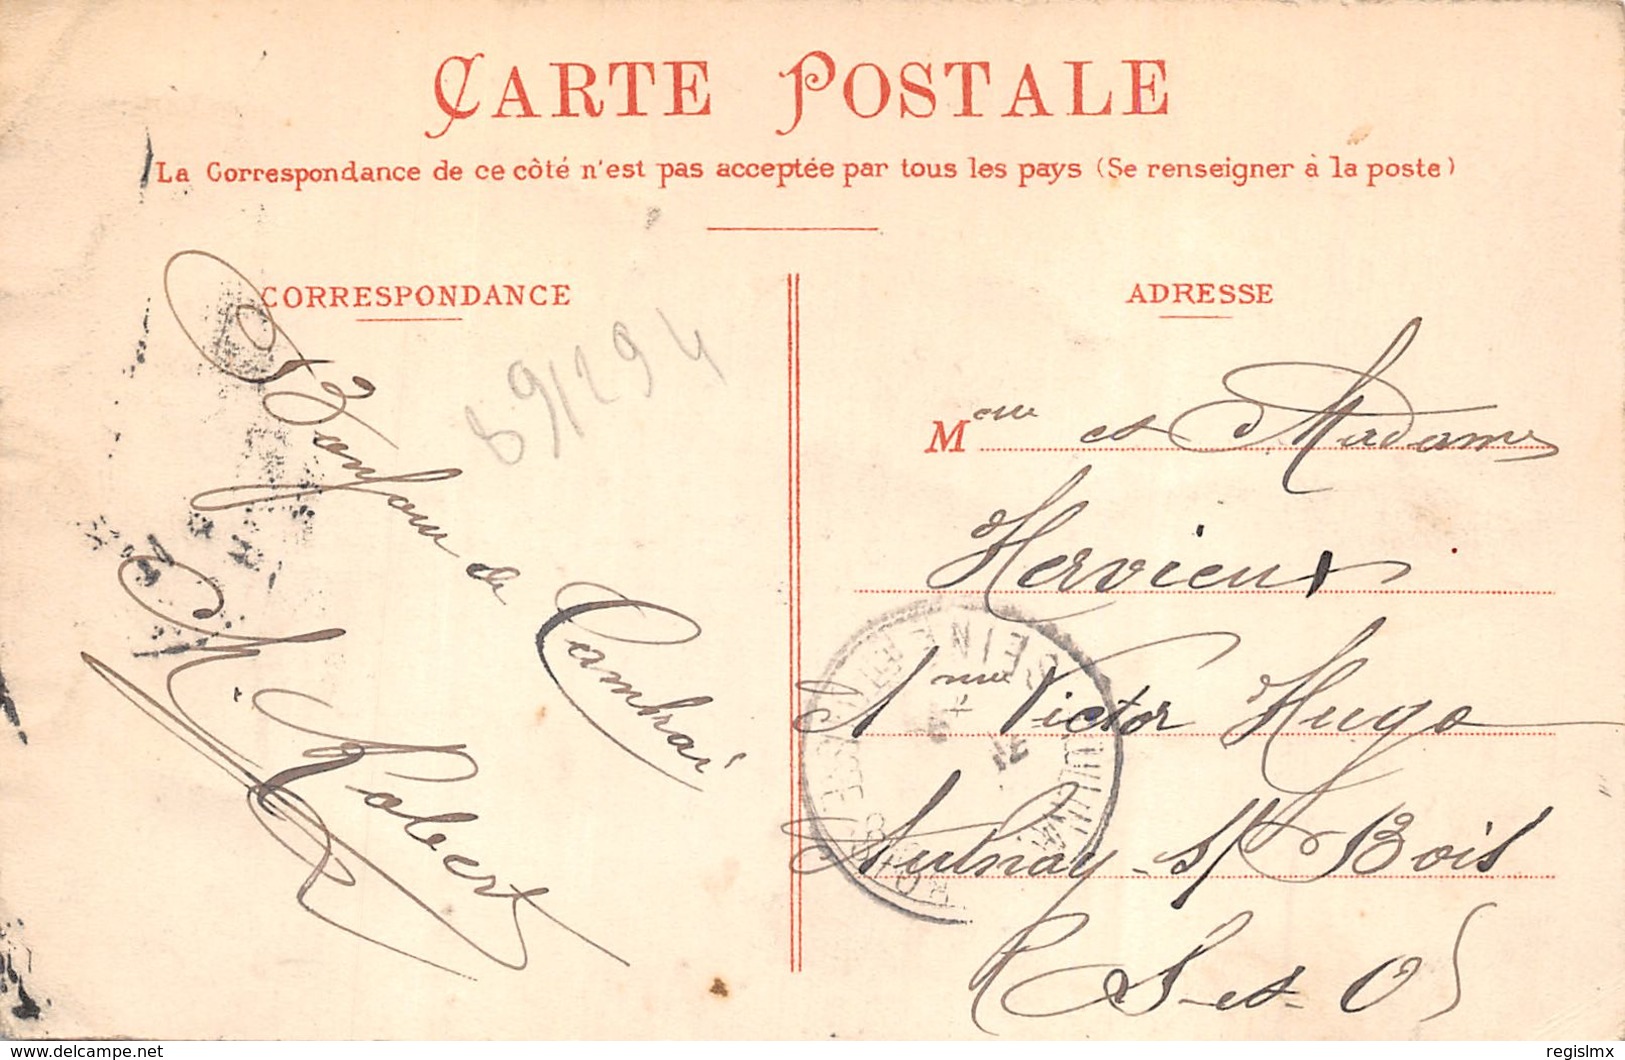 CARTE POSTALE
La Correspondance de ce côté n'est pas acceptée par tous les pays (Se renseigner à la poste)
CORRESPONDANCE
89/294
Bonjour de
Cambrai
M. Robert
ADRESSE
M et Madame
Hervieux
Victor Hugo
Aulnay s/ Bois
S et O
SEINE ET OISE
AULNAY
delcampe.net
regislmx